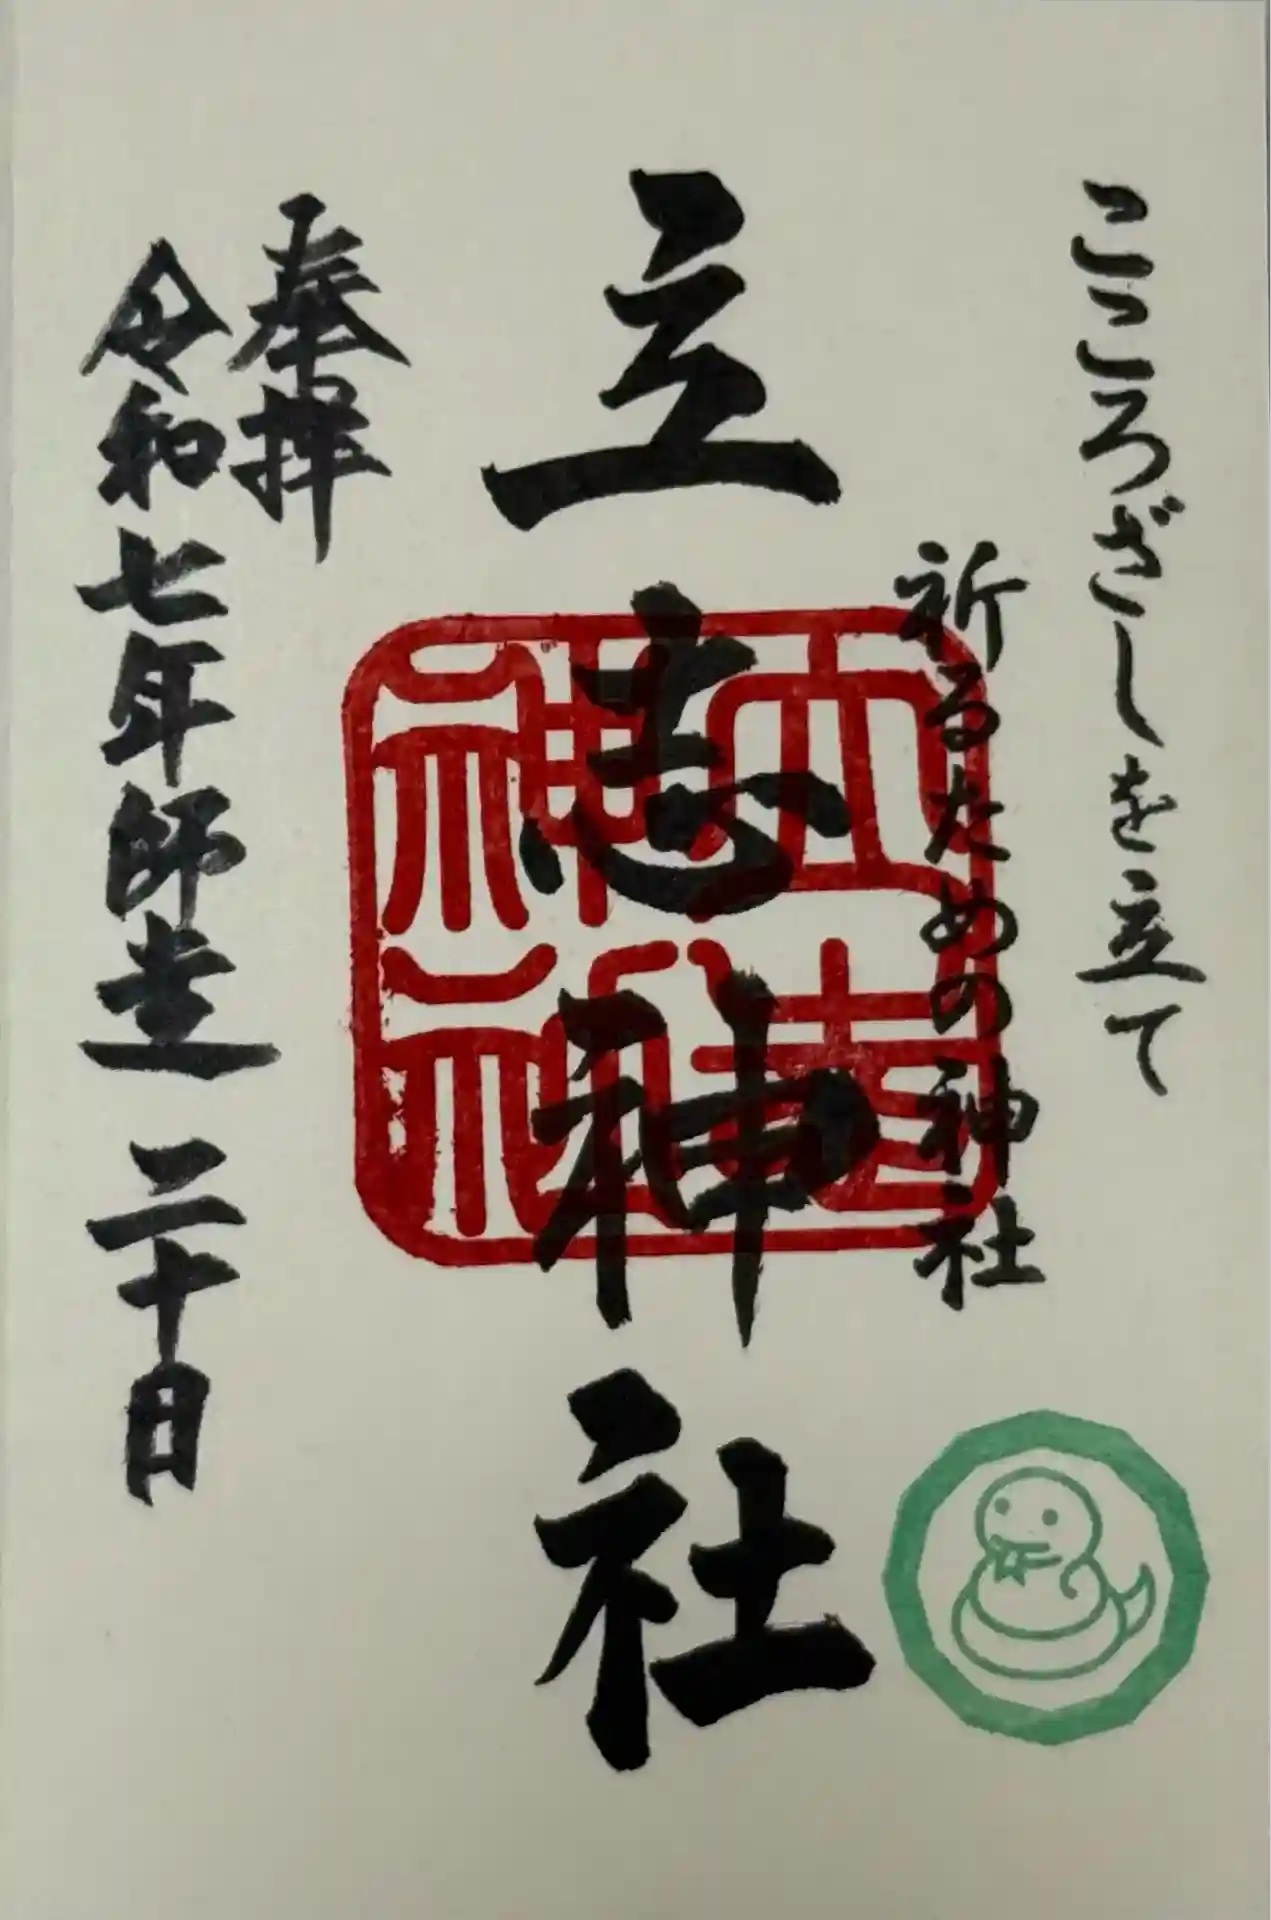 こころざしを立て
祈るための神社
立志神社
奉拝
令和七年師走二十日